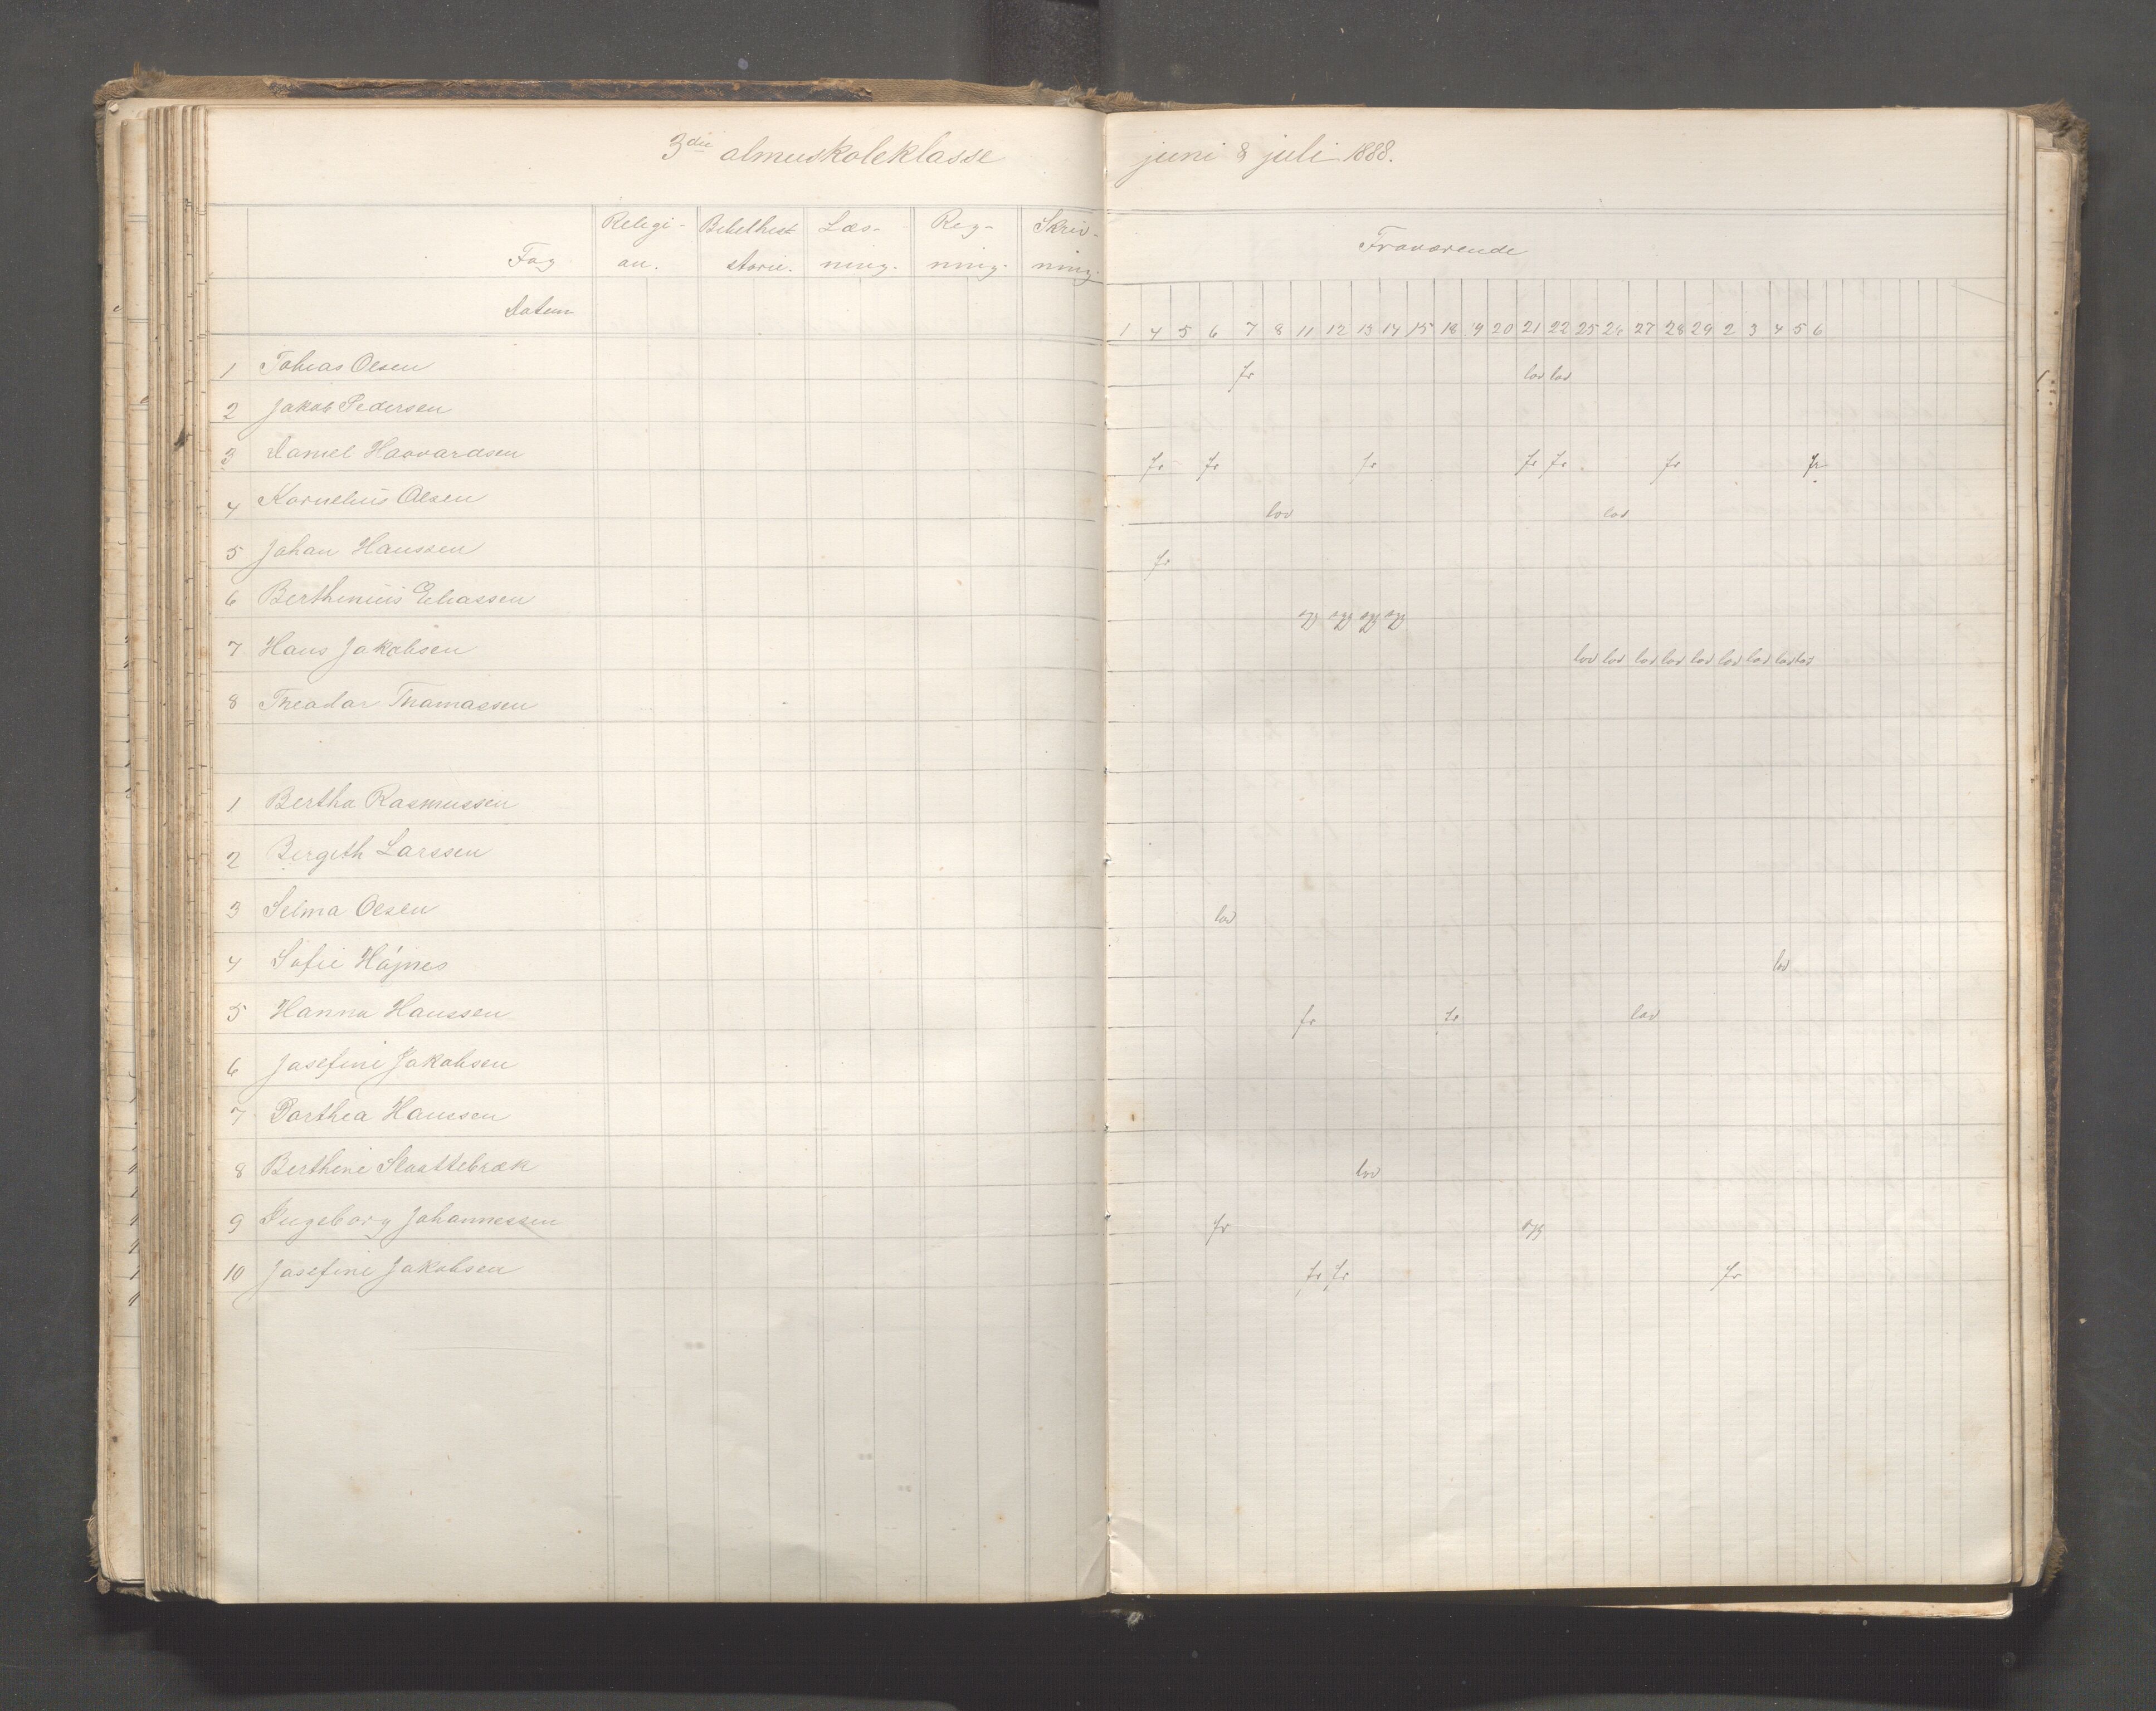 3die almueskoleklasse juni & juli 1888.
Religi- Bibelhist Læs- Reg- Skriv-
Fag on. storie. ning. ning. ning. Fraværende
Datum 1 4 5 6 7 8 11 12 13 14 15 18 19 20 21 22 25 26 27 28 29 2 3 4 5 6
1 Tobias Olsen fr lov lov
2 Jakob Pedersen
3 Daniel Haavardsen fr fr fr fr fr fr fr
4 Kornelius Olsen lov lov
5 Johan Hanssen fr
6 Berthinius Eliassen syg syg syg syg
7 Hans Jakobsen lov lov lov lov lov lov lov lov lov
8 Theodor Thomassen
1 Bertha Rasmussen
2 Bergith Larssen
3 Selma Olsen lov
4 Sofie Højnes lov
5 Hanna Hanssen fr fr lov
6 Josefine Jakobsen
7 Dorthea Hanssen
8 Berthine Slaattebræk lov
9 Ingeborg Johannessen fr syg
10 Josefine Jakobsen fr fr fr